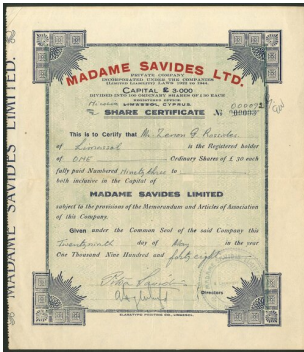 MADAME SAVIDES LTD.
PRIVATE COMPANY
INCORPORATED UNDER THE COMPANIES
(LIMITED LIABILITY) LAWS 1922 TO 1944.
CAPITAL £ 3-000
DIVIDED INTO 100 ORDINARY SHARES OF £ 30 EACH
REGISTERED OFFICE
LIMASSOL, CYPRUS.
SHARE CERTIFICATE №
This is to Certify that Mr.
of Limassol is the Registered holder
of ONE Ordinary Shares of £ 30 each
fully paid Numbered Ninety three to
both inclusive in the Capital of
MADAME SAVIDES LIMITED
subject to the provisions of the Memorandum and Articles of Association
of this Company.
Given under the Common Seal of the said Company this
day of May in the year
One Thousand Nine Hundred and forty eight
Directors
MADAME SAVIDES LIMITED.